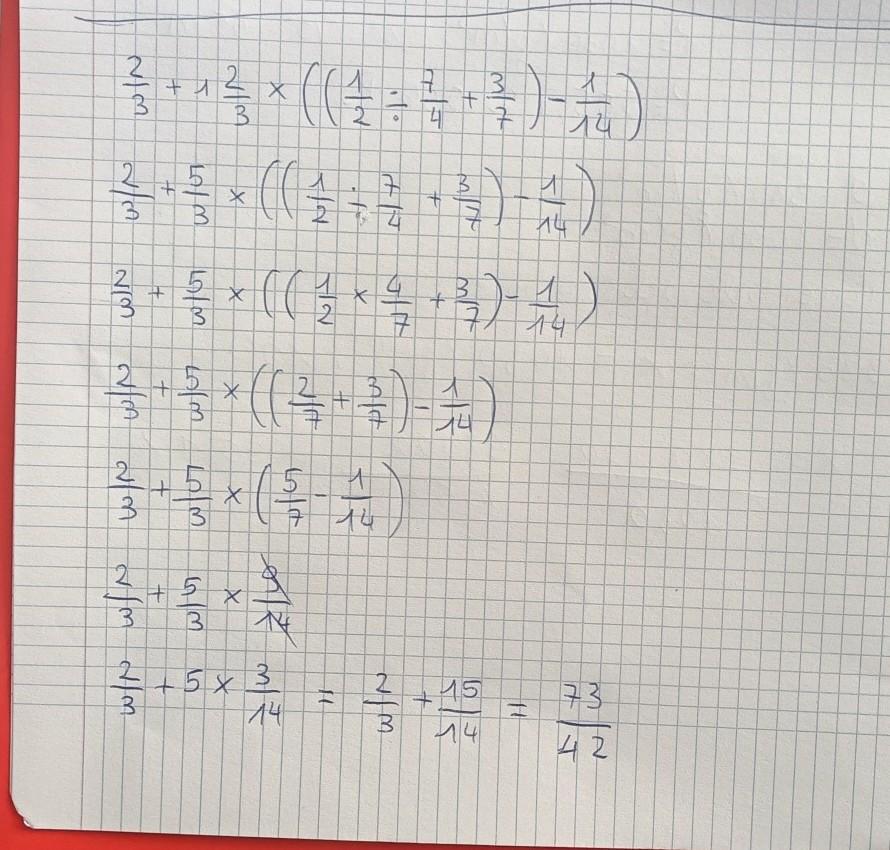 2/3 + 1 2/3 × ((1/2 ÷ 7/4 + 3/7) - 1/14)
2/3 + 5/3 × ((1/2 ÷ 7/4 + 3/7) - 1/14)
2/3 + 5/3 × ((1/2 × 4/7 + 3/7) - 1/14)
2/3 + 5/3 × ((2/7 + 3/7) - 1/14)
2/3 + 5/3 × (5/7 - 1/14)
2/3 + 5/3 × 9/14
2/3 + 5 × 3/14 = 2/3 + 15/14 = 73/42